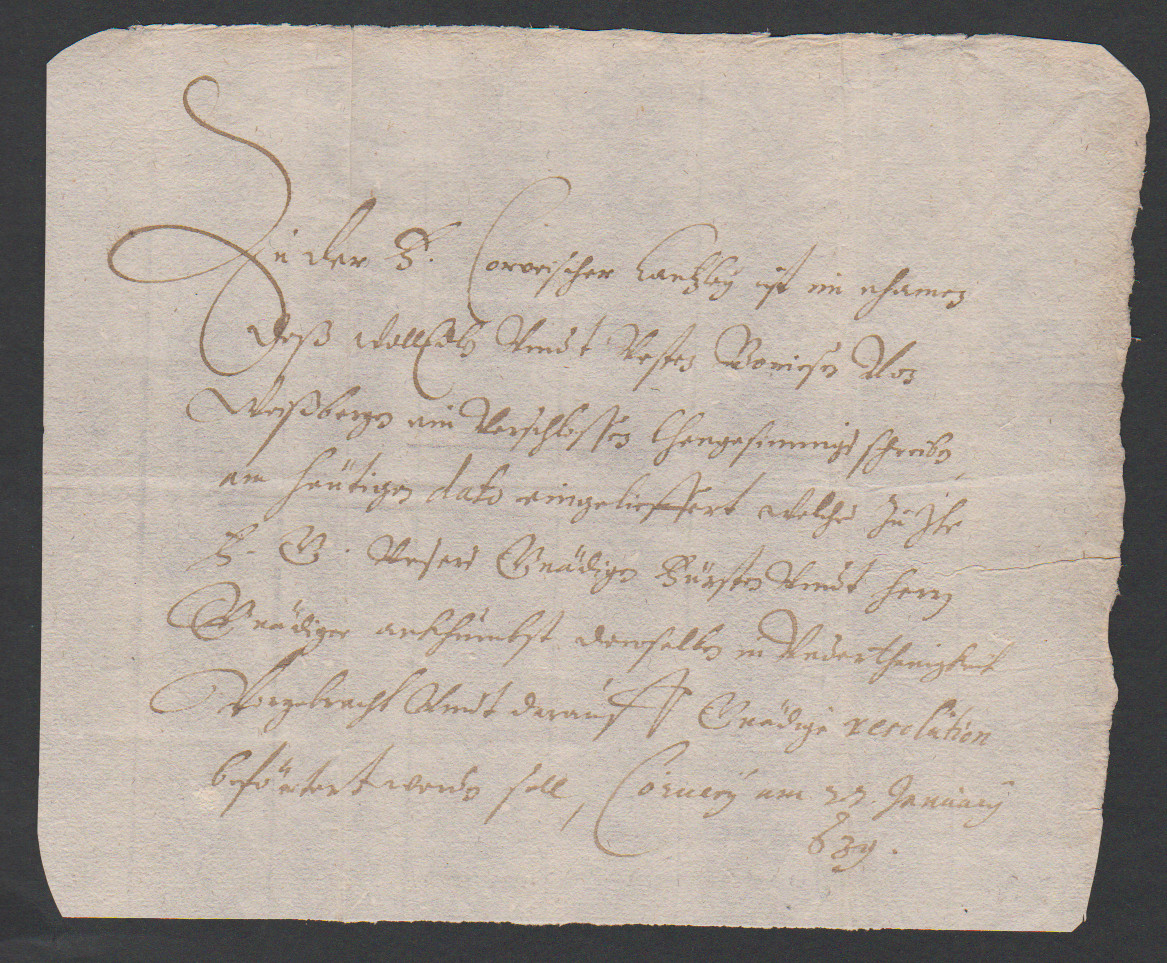 In der F. Corveischer Cantzley ist im nhamen
deß WollEdlen Undt Vesten Von
Weißbergen ein Verschlossen schreiben
am heütigen dato eingelieffert welches zu Ihr
F. G. Unsers Gnädigen Fürsten Undt Herrn
Gnädiger ankhumbst demselben in Underthenigkeit
Vorgebracht Undt darauf Gnädige resolution
befördert werden soll, Corvey am 27. January